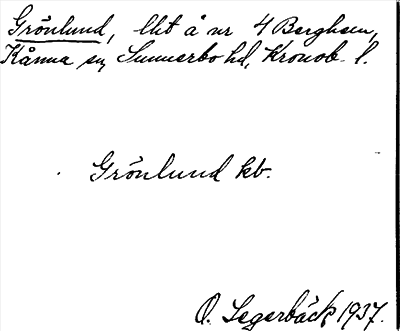 Grönlund, lht å nr 4 Berghem,
Kånna sn, Sunnerbo hd, Kronob. l.
Grönlund kb.
O. Segerbäck 1937.